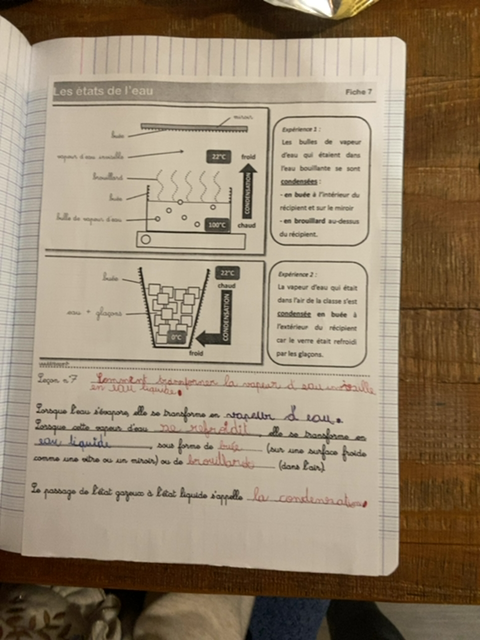 Les états de l'eau
Fiche 7
miroir
buée
vapeur d'eau invisible
22°C
froid
brouillard
CONDENSATION
buée
bulle de vapeur d'eau
100°C
chaud
Expérience 1 :
Les bulles de vapeur
d'eau qui étaient dans
l'eau bouillante se sont
condensées :
- en buée à l'intérieur du
récipient et sur le miroir
- en brouillard au-dessus
du récipient.
buée
22°C
chaud
eau + glaçons
CONDENSATION
0°C
froid
Expérience 2 :
La vapeur d'eau qui était
dans l'air de la classe s'est
condensée en buée à
l'extérieur du récipient
car le verre était refroidi
par les glaçons.
Leçon n°7 Comment transformer la vapeur d'eau invisible
en eau liquide.
Lorsque l'eau s'évapore, elle se transforme en vapeur d'eau.
Lorsque cette vapeur d'eau se refroidit, elle se transforme en
eau liquide sous forme de buée (sur une surface froide
comme une vitre ou un miroir) ou de brouillard (dans l'air).
Le passage de l'état gazeux à l'état liquide s'appelle la condensation.